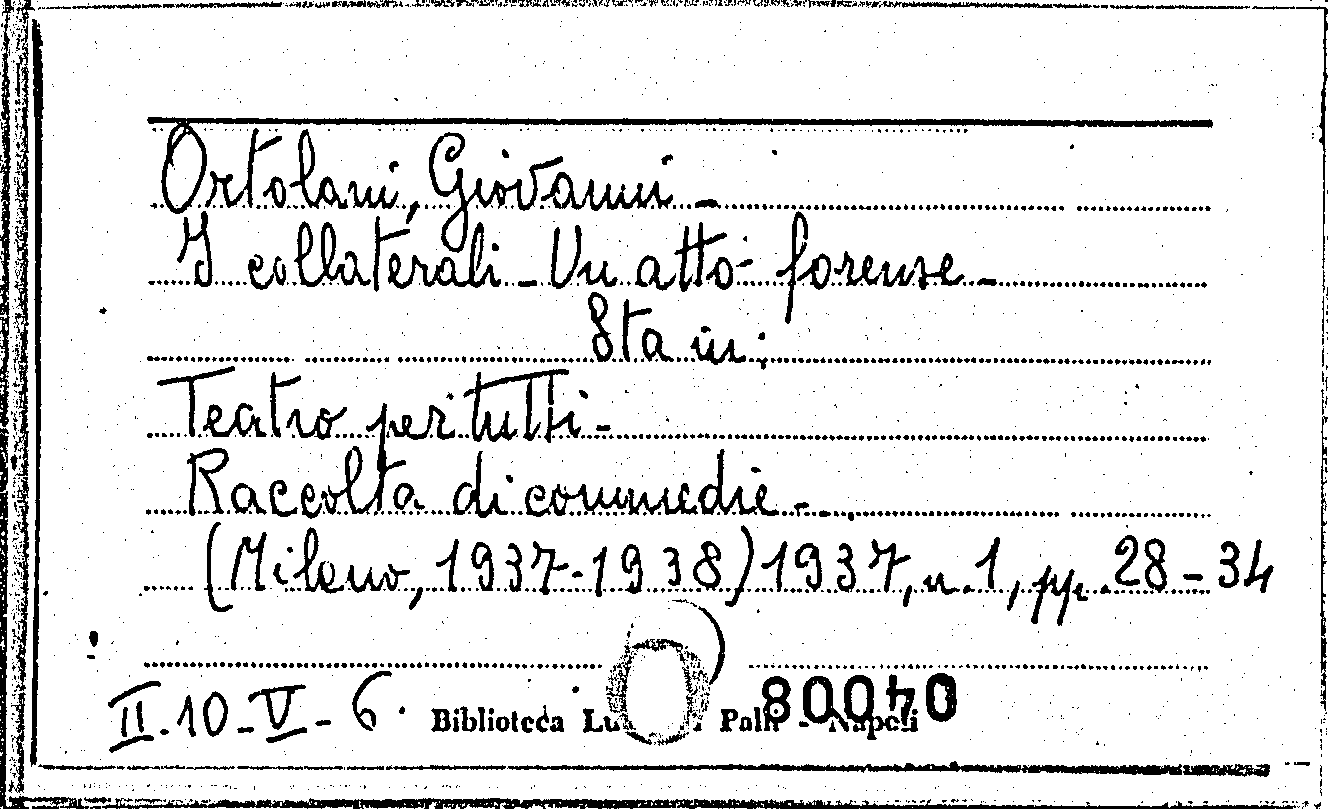 Ortolani, Giovanni -
I collaterali - Un atto forense -
Sta in:
Teatro per tutti -
Raccolta di commedie -
(Milano, 1937-1938) 1937, n. 1, pp. 28-34
II.10-V-6. Biblioteca Napoli